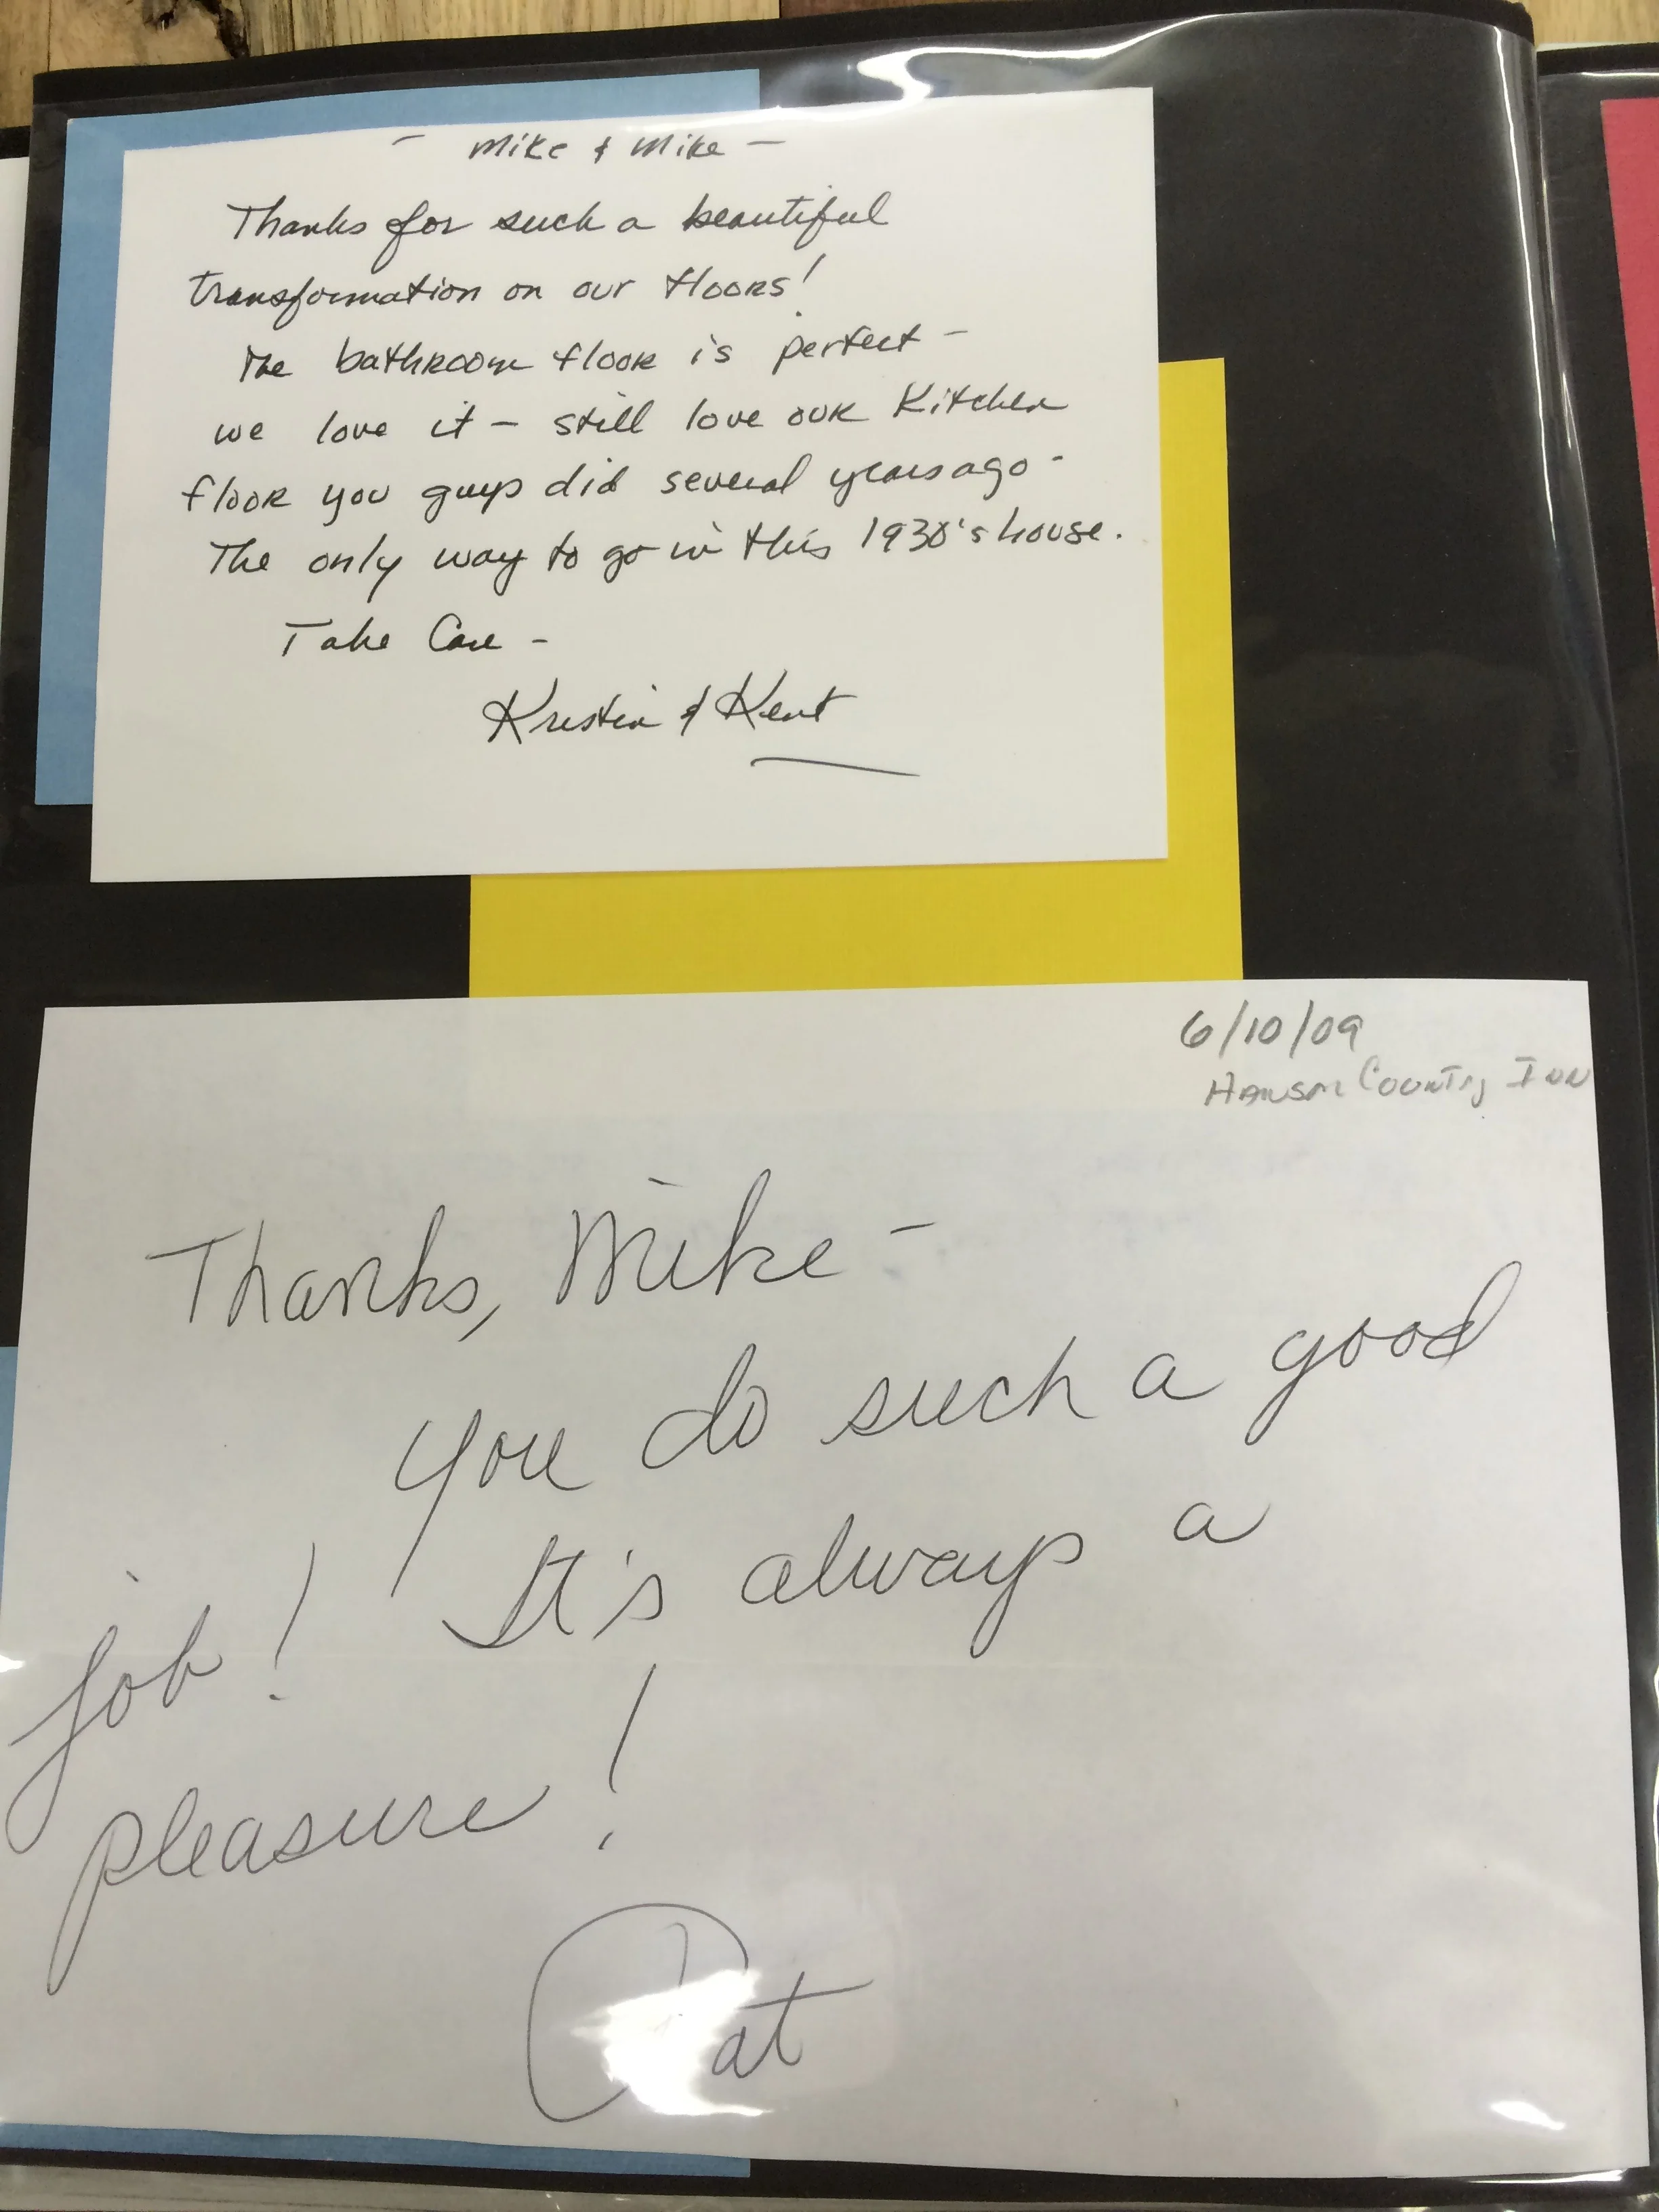 - Mike & Mike -
Thanks for such a beautiful
transformation on our floors!
The bathroom floor is perfect -
we love it - still love our Kitchen
floor you guys did several years ago -
The only way to go in this 1930's house.
Take Care -
Kristin & Kent
6/10/09
Country Inn
Thanks, Mike -
You do such a good
job! It's always a
pleasure!
Pat